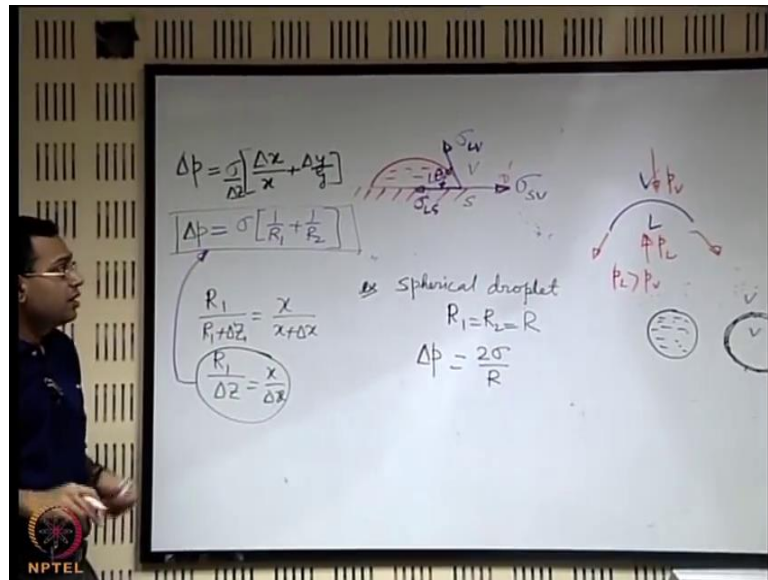 Δp = σ/Δz [Δx/x + Δy/y]
Δp = σ [1/R₁ + 1/R₂]
R₁/(R₁+Δz₁) = x/(x+Δx)
R₁/Δz = x/Δx
σLV
θ
V
σLS
S
σSV
spherical droplet
R₁ = R₂ = R
Δp = 2σ/R
V
pV
L
pL
pL > pV
V
V
NPTEL